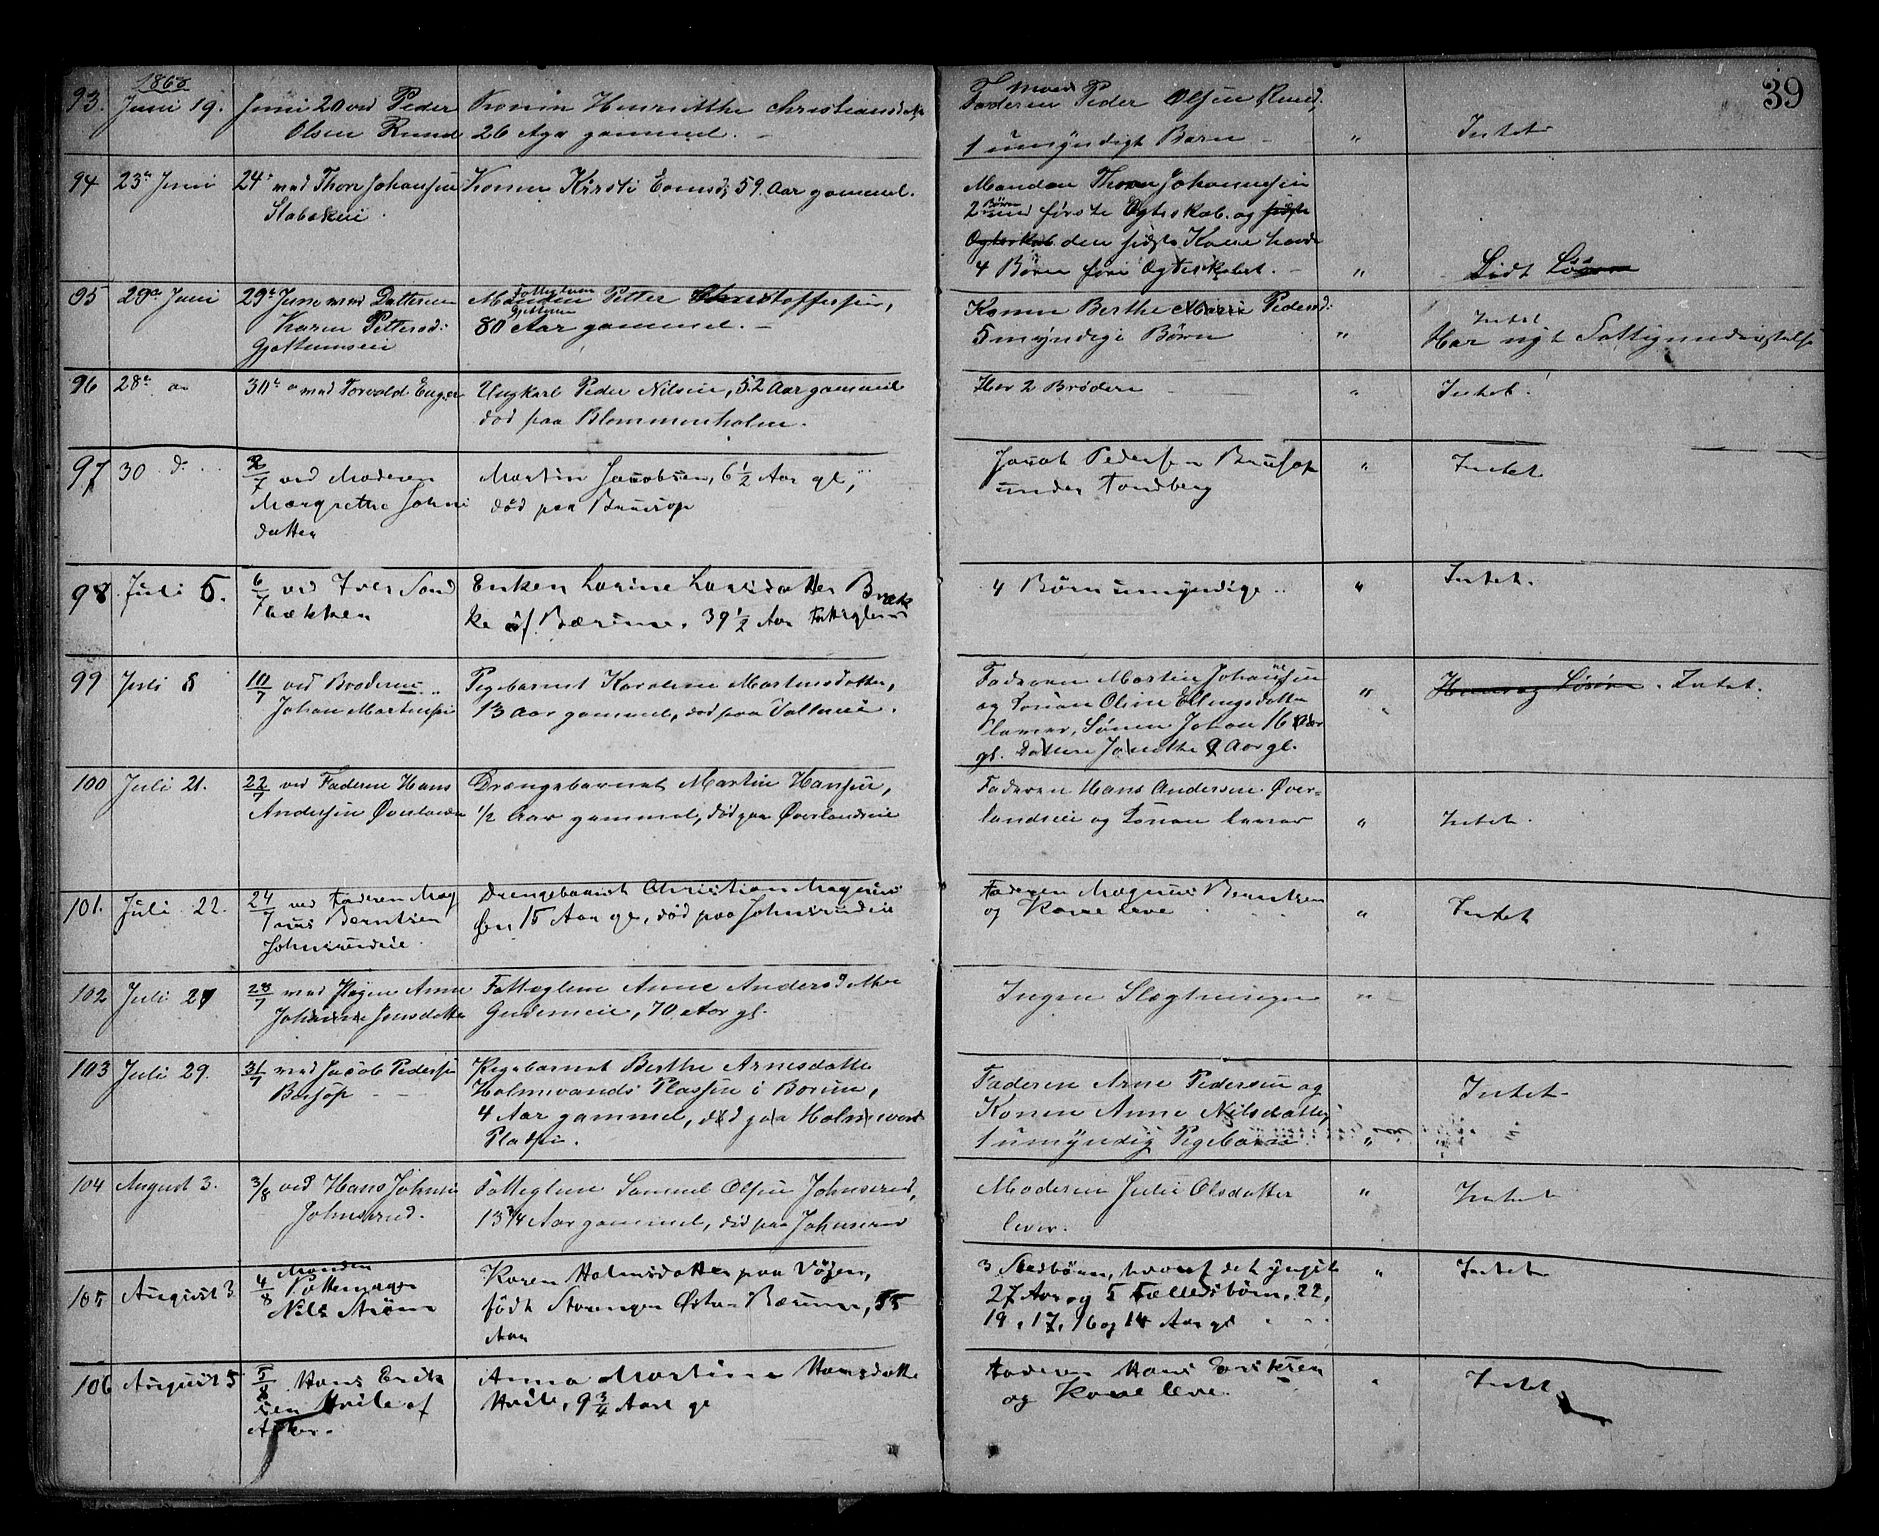 39
1868
93. Juni 19. Juni 20 ved Peder Konen Henriethe Christiansdat Manden Faderen Peder Olsen Rund,
Olsen Rund 26 Aar gammel. — 1 umyndigt Barn — " Intet
94 23de Juni 24de ved Thore Johansen Konen Kirsti Evensd; 59 Aar gammel. Manden Thore Johannesen
Stabækeie. 2 Børn med første Ægteskab. og sidste
Ægteskab den sidste Kone havde
4 Børn føri Ægteskabet. — " Lidt Løsøre
95 29de Juni 29de Juni ved Datteren Manden Fattiglem Petter Christoffersen, Konen Berthe Marie Pedersd:
Karen Pettersd: Gjettum 80 Aar gammel. — 5 myndige Børn " Intet
Gjettumseie Har nyt Fattigunderstøttelse
96 28de do 30de do ved Torvald Enger Ungkarl Peder Nilsen, 52 Aar gammel Har 2 Brødre " Intet.
død paa Blommenholm.
97 30 do 2/7 ved Moderen Martin Jacobsen, 6 1/2 Aar gl, Jacob Pedersen Bursop " Intet
Margrethe Johns død paa Bursop under Tandberg
datter
98 Juli 5. 6/7 ved Iver Sand Enken Larine Larsdatter Bræk 4 Børn umyndige " Intet.
bækken ke af Bærum. 39 1/2 Aar Fattiglem
99 Juli 8 10/7 ved Broderen Pigebarnet Karoline Martinsdatter, Faderen Martin Johansen
Johan Martinsen 13 Aar gammel, død paa Valleneie. og Konen Oline Ellingsdatter " Intet.
lever, Sønen Johan 16 Aar
gl. Datter Janethe 9 Aar gl.
100 Juli 21. 22/7 ved Faderen Hans Drængebarnet Martin Hansen, Faderen Hans Andersen Øver-
Andersen Øverlandseie 1/2 Aar gammel, død paa Øverlandseie landseie og Konen lever " Intet.
101. Juli 22. 24/7 ved Faderen Mag Drengebarnet Christian Magnus Faderen Magnus Berntsen
nus Berntsen sen 15 Aar gl, død paa Johnsrudeie og Kone leve " Intet
Johnsrudeie.
102 Juli 27 28/7 ved Pigen Anne Fattiglem Anne Andersdatter Ingen Slægtninger "
Johanne Jensdatter , 70 Aar gl.
103 Juli 29. 31/7 ved Jacob Pedersen Pigebarnet Berthe Arnesdatter Faderen Arne Pedersen og Intet
Bursop Holmevands Pladsen i Bærum, Konen Anne Nilsdatter,
4 Aar gammel, død paa Holmevand 1 umyndig Pigebarn "
Pladsen.
104 August 3. 3/8 ved Hans Johnsen Fattiglem Samuel Olsen Johnsrud, Moderen Julie Olsdatter " Intet
Johnsrud. 13 3/4 Aar gammel, død paa Johnsrud lever.
105 August 3. 4/8 Manden Karen Holmsdatter paa Vøjen, 3 Sædbørn, hvoraf det yngste " Intet
Pottemager født Stvanger Østre Bærum, 55 27 Aar og 5 Fællesbørn, 22,
Nils Strøm Aar 19, 17, 16 og 14 Aar gl
106 August 5 5/8 Hans Erik Anna Martine Hansdatter Faderen Hans Eriksen " Intet
sen Hvile af Hvile, 9 3/4 Aar gl og Kone leve.
Asker.